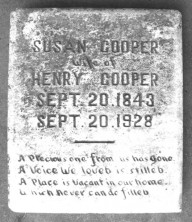 SUSAN COOPER
wife of
HENRY COOPER
SEPT. 20. 1843
SEPT. 20. 1928
A Precious one from us has Gone
A Voice We Loved is stilled
A Place is Vacant in our home
Which Never Can be filled